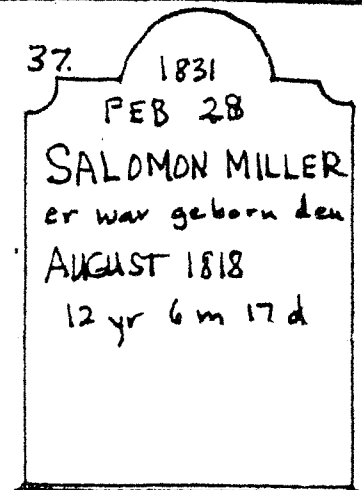 37.
1831
PEB 28
SALOMON MILLER
er war geborn den
AUGUST 1818
12 yr 6 m 17 d